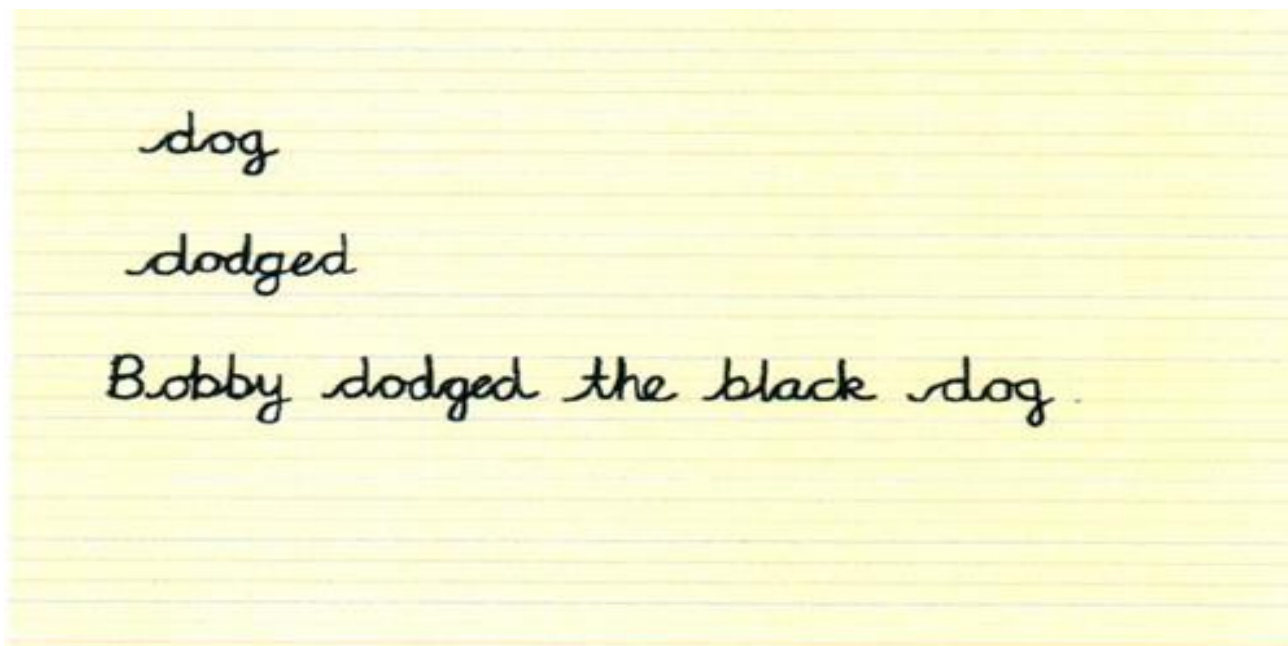 dog
dodged
Bobby dodged the black dog.